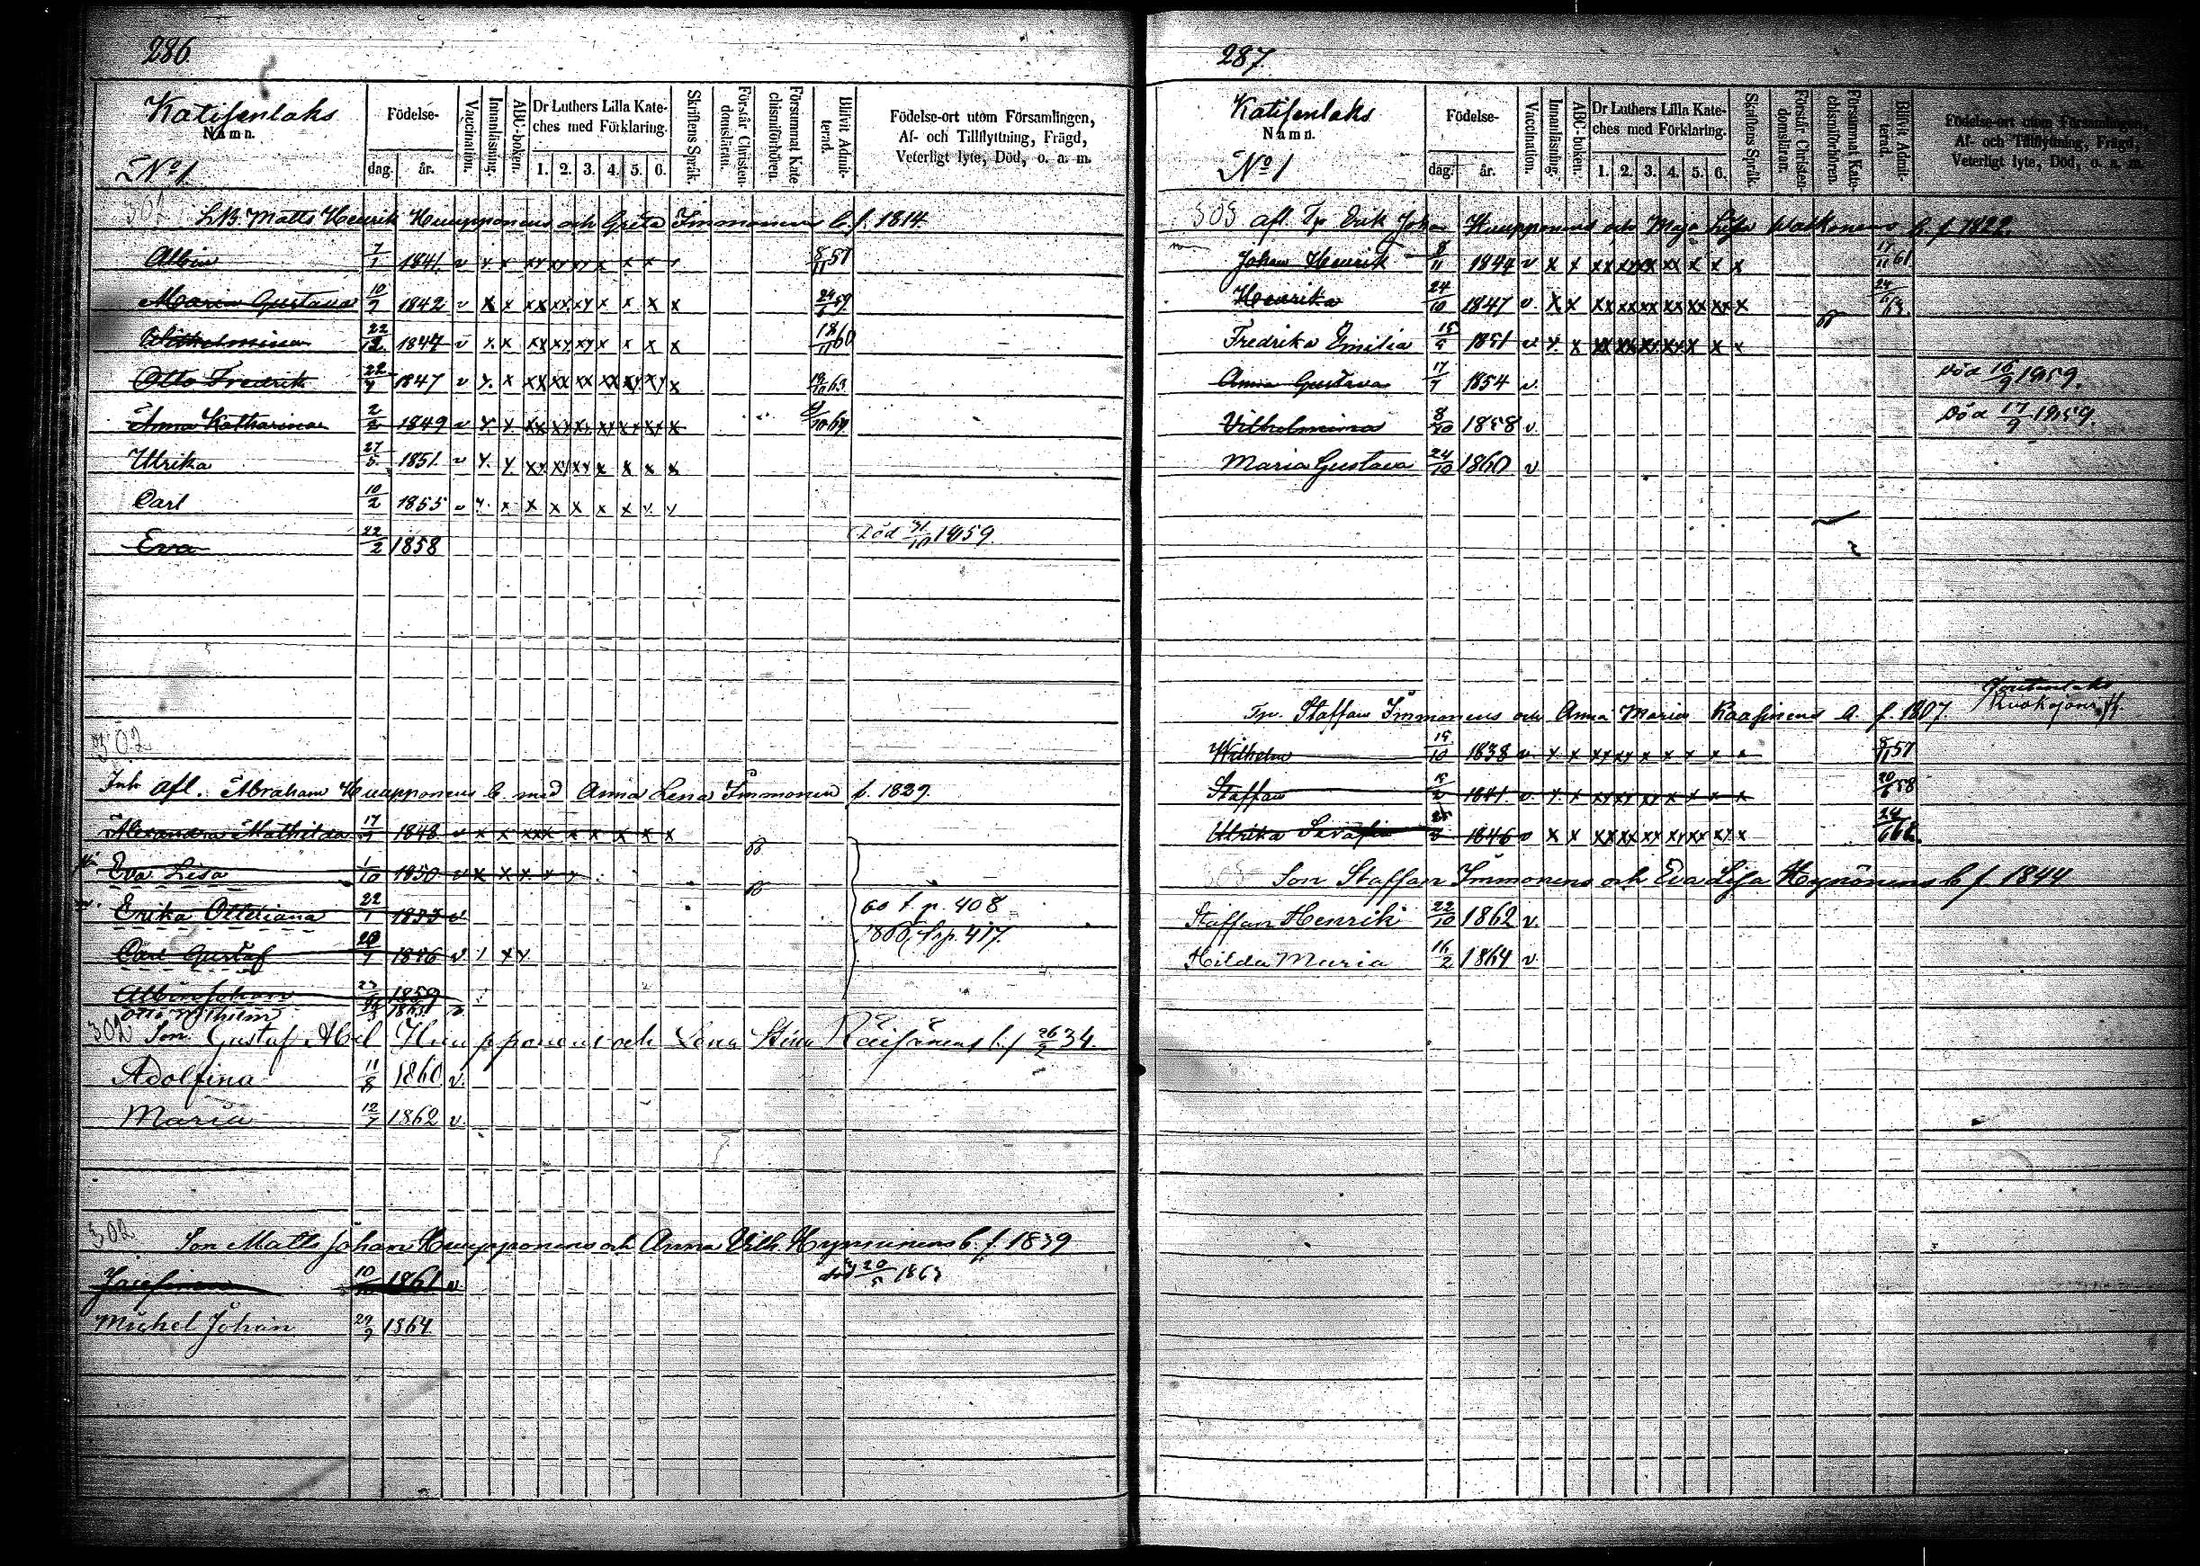 286.
Katisenlaks
Namn.
No 1.
Födelse-
dag.
år.
Vaccination.
Innanläsning.
ABC-boken.
Dr Luthers Lilla Kate-
ches med Förklaring.
1. 2. 3. 4. 5. 6.
Skriftens Språk.
Förstår Christen-
domsläran.
Försummat Kate-
chismiförhören.
Blifvit Admit-
terad.
Födelse-ort utom Församlingen,
Af- och Tillflyttning, Frägd,
Veterligt lyte, Död, o. a. m.
302
Matts Henrik Huupponens och Greta Immonens b. f. 1814.
Albin 7/1 1841. v 8/11 57
Maria Gustava 10/7 1842 v 24/6 59.
Wilhelmina 22/12 1844 v 18/11 60
Otto Fredrik 22/7 1847 v 63
Anna Katharina 2/2 1849 v
Ulrika 27/5 1851. v
Carl 10/2 1855 v
Eva 22/2 1858 Död 31/10 1859.
302
Inh afl. Abraham Huupponens b. med Anna Lena Immonen f. 1829.
Alexandra Mathilda 17/1 1848 v
Eva Lisa 1/10 1850 v
Erika Ottiliana 22/1 1853 v
60 f. p. 408
Carl Gustaf 1856 v
p. 417.
Albin Johan 1859
Otto Wilhelm
302 Son Gustaf Huupponens och Lena Stina Räisänens b. f 26/2 34.
Adolfina 11/8 1860 v.
Maria 12/7 1862 v.
302
Son Matts Johan Huupponens och Anna Vilh. Hynninens b. f. 1839
Josefina 10 1861 v. död 20/5 1863
Michel Johan 29/9 1864
287.
Katisenlaks
Namn.
No 1
Födelse-
dag.
år.
Vaccination.
Innanläsning.
ABC-boken.
Dr Luthers Lilla Kate-
ches med Förklaring.
1. 2. 3. 4. 5. 6.
Skriftens Språk.
Förstår Christen-
domsläran.
Försummat Kate-
chismiförhören.
Blifvit Admit-
terad.
Födelse-ort utom Församlingen,
Af- och Tillflyttning, Frägd,
Veterligt lyte, Död, o. a. m.
303 afl. Tp Erik Johan Huupponens och Maja Lisa Walkonens b. f. 1822.
Johan Henrik 8/11 1844 v 17/11 61
Henrika 24/10 1847 v. 24/6 63.
Fredrika Emilia 15/5 1851 v
Anna Gustava 17/7 1854 v. död 16/9 1859.
Vilhelmina 8/10 1858 v. Död 17/9 1859.
Maria Gustava 24/10 1860 v
Tp. Staffan Immonens och Anna Maria Kaasinens b. f. 1807.
Wilhelm 19/10 1838 v. 8/11 57
Staffan 1841. v. 20/6 58
Ulrika Serafia 1846 v 24/6 62.
Son Staffan Immonens och Eva Lisa Hynönens b f. 1844
Staffan Henrik 22/10 1862 v.
Hilda Maria 16/2 1864 v.